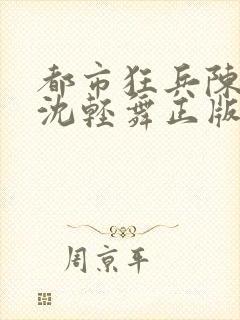 都市狂兵陳
沈輕舞正版
周京平